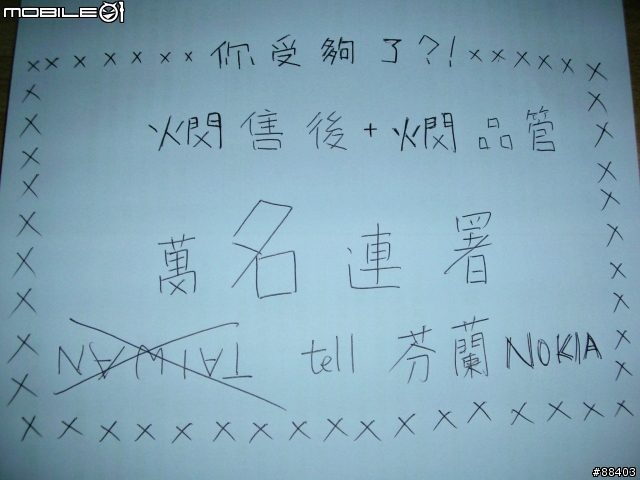 MOBILE01
×××××××× 你受夠了?! ××××××××
燜售後+燜品管
萬名連署
TAIWAN tell 芬蘭 NOKIA
#88403